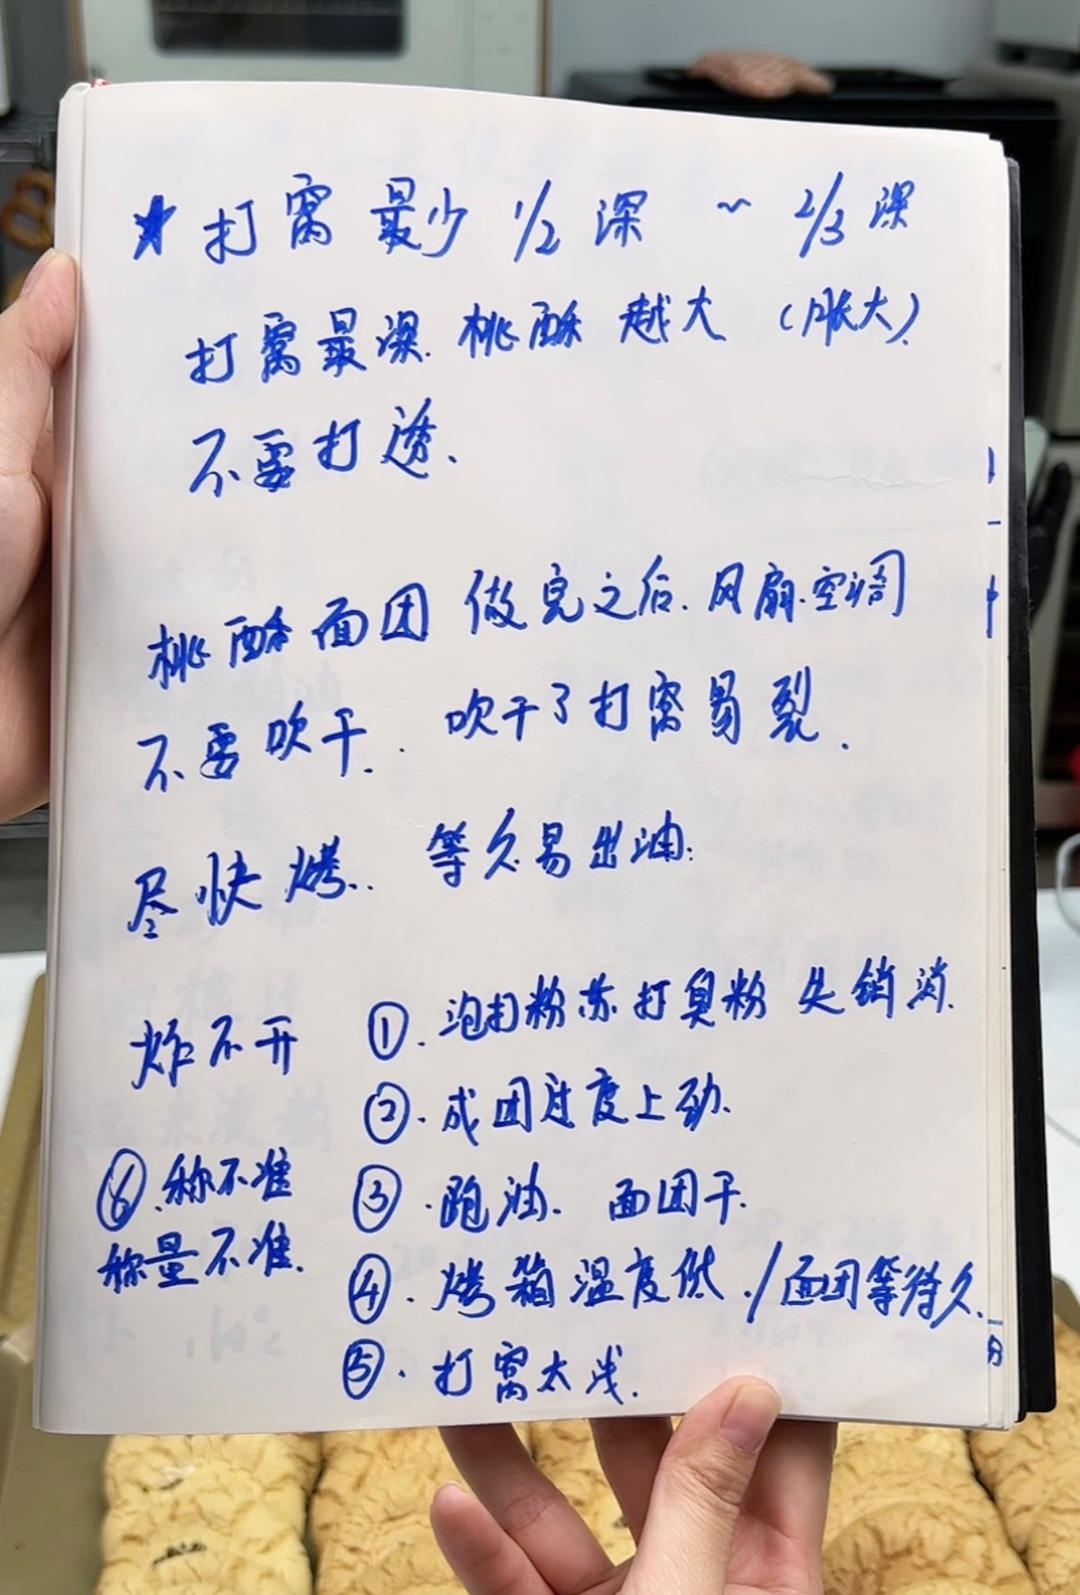 ★ 打窝最少 1/2 深 ~ 2/3 深
打窝最深. 桃酥越大 (胀大).
不要打透.
桃酥面团做完之后. 风扇.空调
不要吹干. 吹干了打窝易裂.
尽快烤.. 等久易出油.
炸不开 ①. 泡打粉苏打臭粉失销消.
②. 成团过度上劲.
③. 跑油. 面团干.
④. 烤箱温度低. / 面团等待久.
⑤. 打窝太浅.
⑥. 称不准
称量不准.